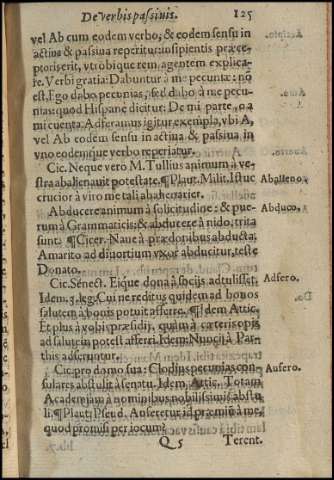 De verbis passiuis. 125
vel Ab cum eodem verbo, & eodem sensu in
actiua & passiua reperitur: insipientis præce-
ptoris erit, vtrobique rem agentem explica-
re. Verbi gratia: Dabuntur à me pecuniæ: nō
est, Ego dabo pecunias, sed, dabo à me pecu-
nias: quod Hispanè dicitur: De mi parte, o a
mi cuenta. Adferamus igitur exempla, vbi A,
vel Ab eodem sensu in actiua & passiua in
vno eodemque verbo reperiatur.
Cic. Neque vero M. Tullius animum à ve-
stra abalienauit potestate. ¶ Plaut. Milit. Istuc Aballeno.
crucior à viro me tali abalienarier.
Abducere animum à solicitudine: & pue- Abduco.
rum à Grammaticis; & abducere à nido, trita
sunt. ¶ Cicer. Naue à prædonibus abducta.
Amarito ad diuortium vxor abducitur, teste
Donato.
Cic. Senect. Eique dona à socijs adtulisset. Adfero.
Idem. 3. leg. Cui ne reditus quidem ad bonos
salutem à bonis potuit afferre. ¶ Idem Attic.
Et plus à vobis præsidij, quàm à cæteris copijs
ad salutem potest afferri. Idem. Nuncij à Par-
this adferuntur.
Cic. pro domo sua: Clodius pecunias con- Aufero.
sulares abstulit à senatu. Idem, Attic. Totam
Academiam à nominibus nobilissimis abstu-
li. ¶ Plaut. Pseud. Auferetur id præmiū à me,
quod promisi per iocum?
Q 5 Terent.